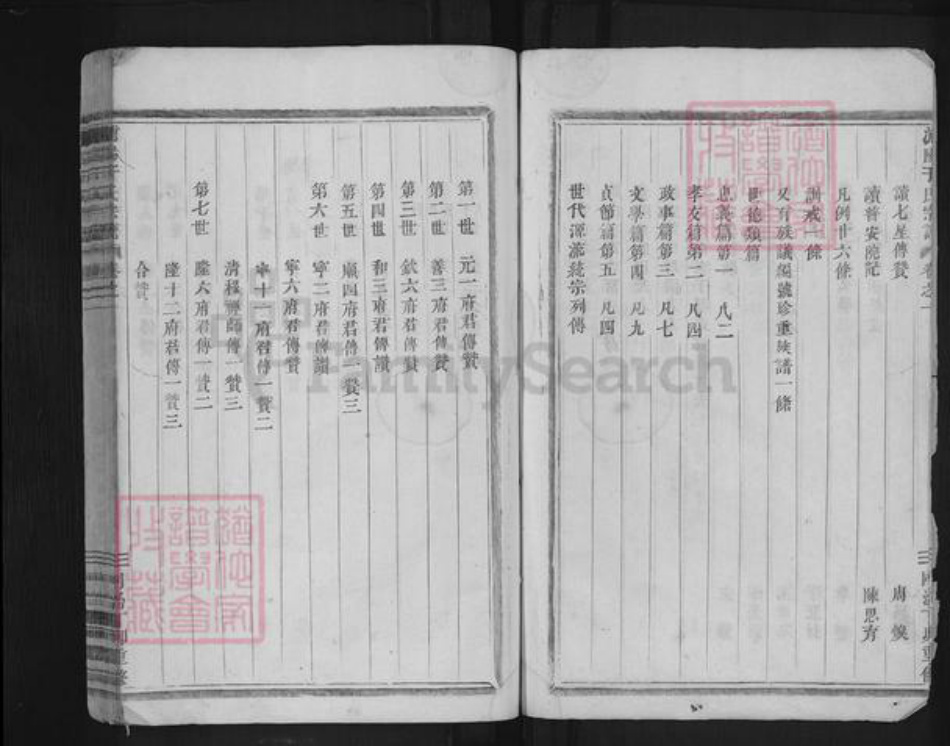 讀七星傳贊
讀將安隄記 陳思育
凡例廿六條
訓戒一條
又有族議編號珍重族譜一條
世德類篇
忠義篇第一 凡二
孝友篇第二 凡四
政事篇第三 凡七
文學篇第四 凡九
貞節篇第五 凡四
世代源流統宗列傳
第一世 元一府君傳贊
第二世 善三府君傳贊
第三世 欽六府君傳贊
第四世 和三府君傳讚
第五世 順四府君傳一贊三
第六世 寧二府君傳韻
寧六府君傳贊
寧十一府君傳一贊二
清程 師傳一贊三
第七世 隆六府君傳一贊二
隆十二府君傳一贊三
合贊
FamilySearch
譜學會
收藏